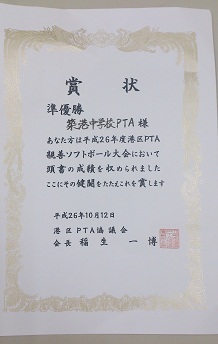 賞状
準優勝
築港中学校PTA 様
あなた方は平成26年度港区PTA
親善ソフトボール大会において
頭書の成績を収められました
ここにその健闘をたたえこれを賞します
平成26年10月12日
港区PTA協議会
会長 稲生 一博